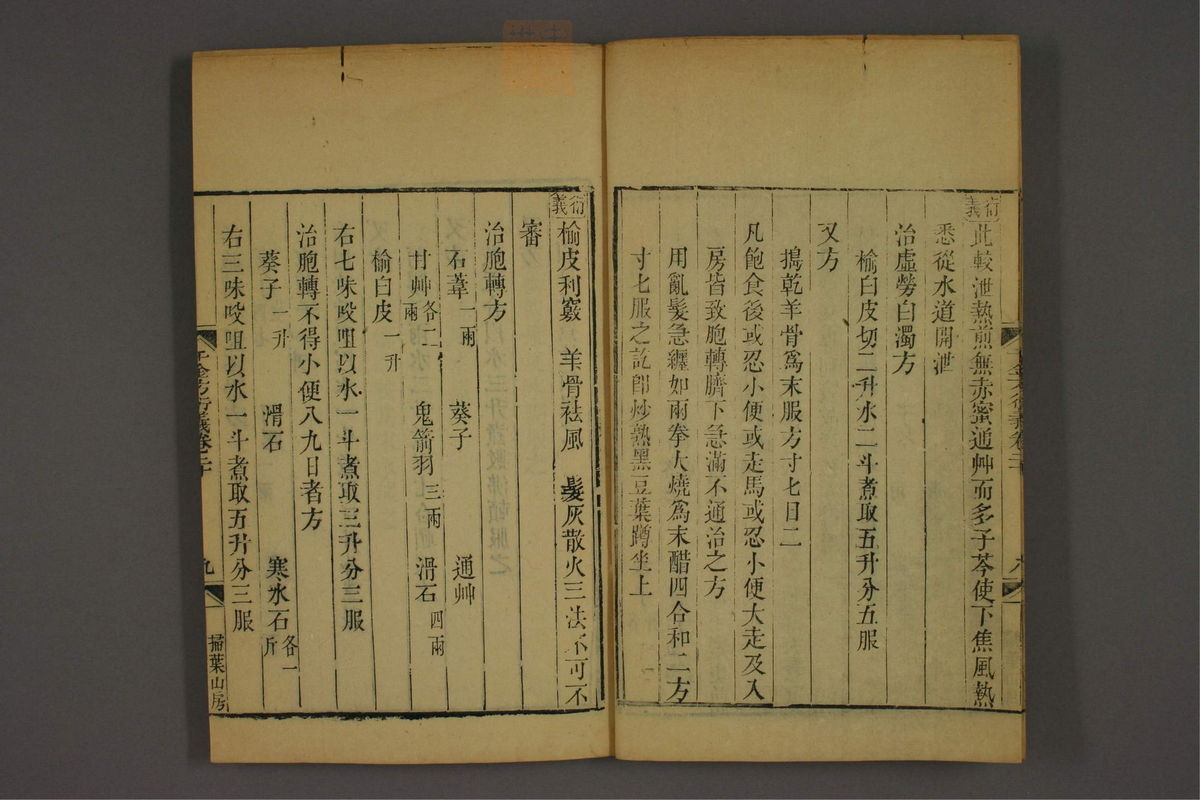 衍義此較泄熱煎無赤蜜通艸而多子芩使下焦風熱
悉從水道開泄
治虛勞白濁方
榆白皮切二升水二斗煮取五升分五服
又方
搗乾羊骨爲末服方寸匕日二
凡飽食後或忍小便或走馬或忍小便大走及入
房皆致胞轉臍下急滿不通治之方
用亂髮急纏如兩拳大燒爲末醋四合和二方
寸匕服之訖卽炒熟黑豆葉蹲坐上
千金方衍義卷二十
八
衍義榆皮利竅 羊骨祛風 髮灰散火三法不可不
審
治胞轉方
石葦一兩 葵子 通艸
甘艸各二兩 鬼箭羽三兩 滑石四兩
榆白皮一升
右七味㕮咀以水一斗煮取三升分三服
治胞轉不得小便八九日者方
葵子一升 滑石 寒水石各一斤
右三味㕮咀以水一斗煮取五升分三服
千金方衍義卷二十
九
掃葉山房